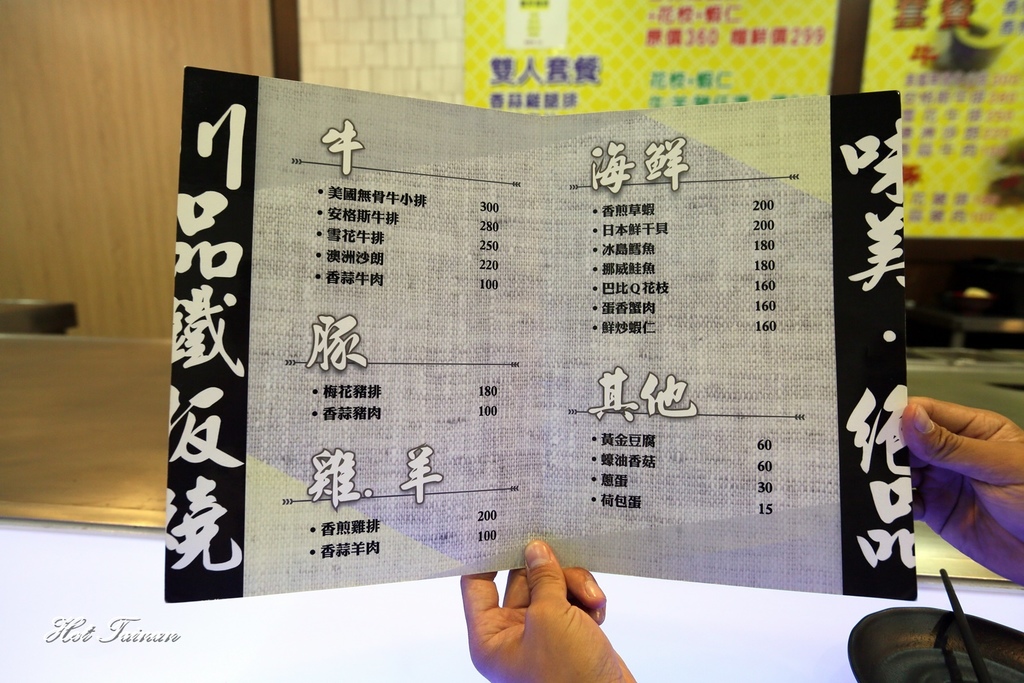 川品鐵板燒
牛
•美國無骨牛小排 300
•安格斯牛排 280
•雪花牛排 250
•澳洲沙朗 220
•香蒜牛肉 100
豚
•梅花豬排 180
•香蒜豬肉 100
雞．羊
•香煎雞排 200
•香蒜羊肉 100
海鮮
•香煎草蝦 200
•日本鮮干貝 200
•冰島鱈魚 180
•挪威鮭魚 180
•巴比Q花枝 160
•蛋香蟹肉 160
•鮮炒蝦仁 160
其他
•黃金豆腐 60
•蠔油香菇 60
•蔥蛋 30
•荷包蛋 15
味美．絕品
+花枝+蝦仁
原價360 嚐鮮價299
雙人套餐
香蒜雞腿排
花枝+蝦仁
套餐
牛
Hot Tainan